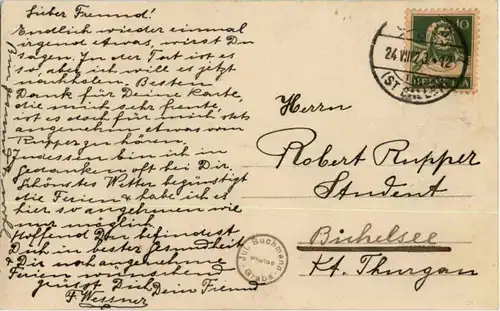 Lieber Freund!
Endlich wieder einmal
irgend etwas, wirst Du
sagen. In der Tat ist es
so, aber ich will es jetzt
nachholen. Besten
Dank für Deine Karte,
die mich sehr freute,
ist es doch für mich stets
angenehm etwas vom
Rupper zu hören.
Indessen bin ich in
Gedanken oft bei Dir.
Schönstes Wetter begünstigt
die Ferien & habe ich es
hier so angenehm wie
nur möglich.
Hoffend Du befindest
Dich in bester Gesundheit
& Dir noch angenehme
Ferien wünschend
grüsst Dich Dein Freund
F. Wessner
10
24 VIII 23
ST. GALLEN
HELVETIA
Herrn
Robert Rupper
Student
Bichelsee
Kt. Thurgau
Jul. Buchmann
Photos
Grabs